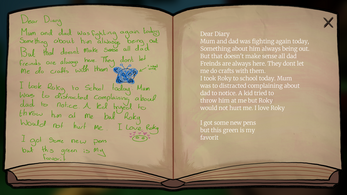 Dear Diary
Mum and dad was fighting again today.
Something about him always being out.
But that doesnt make sense all dad
Freinds are always here. They dont let
me do crafts with them
I took Roky to School today Mum
was to distracted complaining about
dad to notice A kid tryed to
throw him at me but Roky
would not hurt me. I love Roky
I got some new pens
but this green is my
favorit
Dear Diary
Mum and dad was fighting again today.
Something about him always being out.
But that doesn't make sense all dad
Freinds are always here. They dont let
me do crafts with them.
I took Roky to school today. Mum
was to distracted complaining about
dad to notice. A kid tried to
throw him at me but Roky
would not hurt me. I love Roky
I got some new pens
but this green is my
favorit